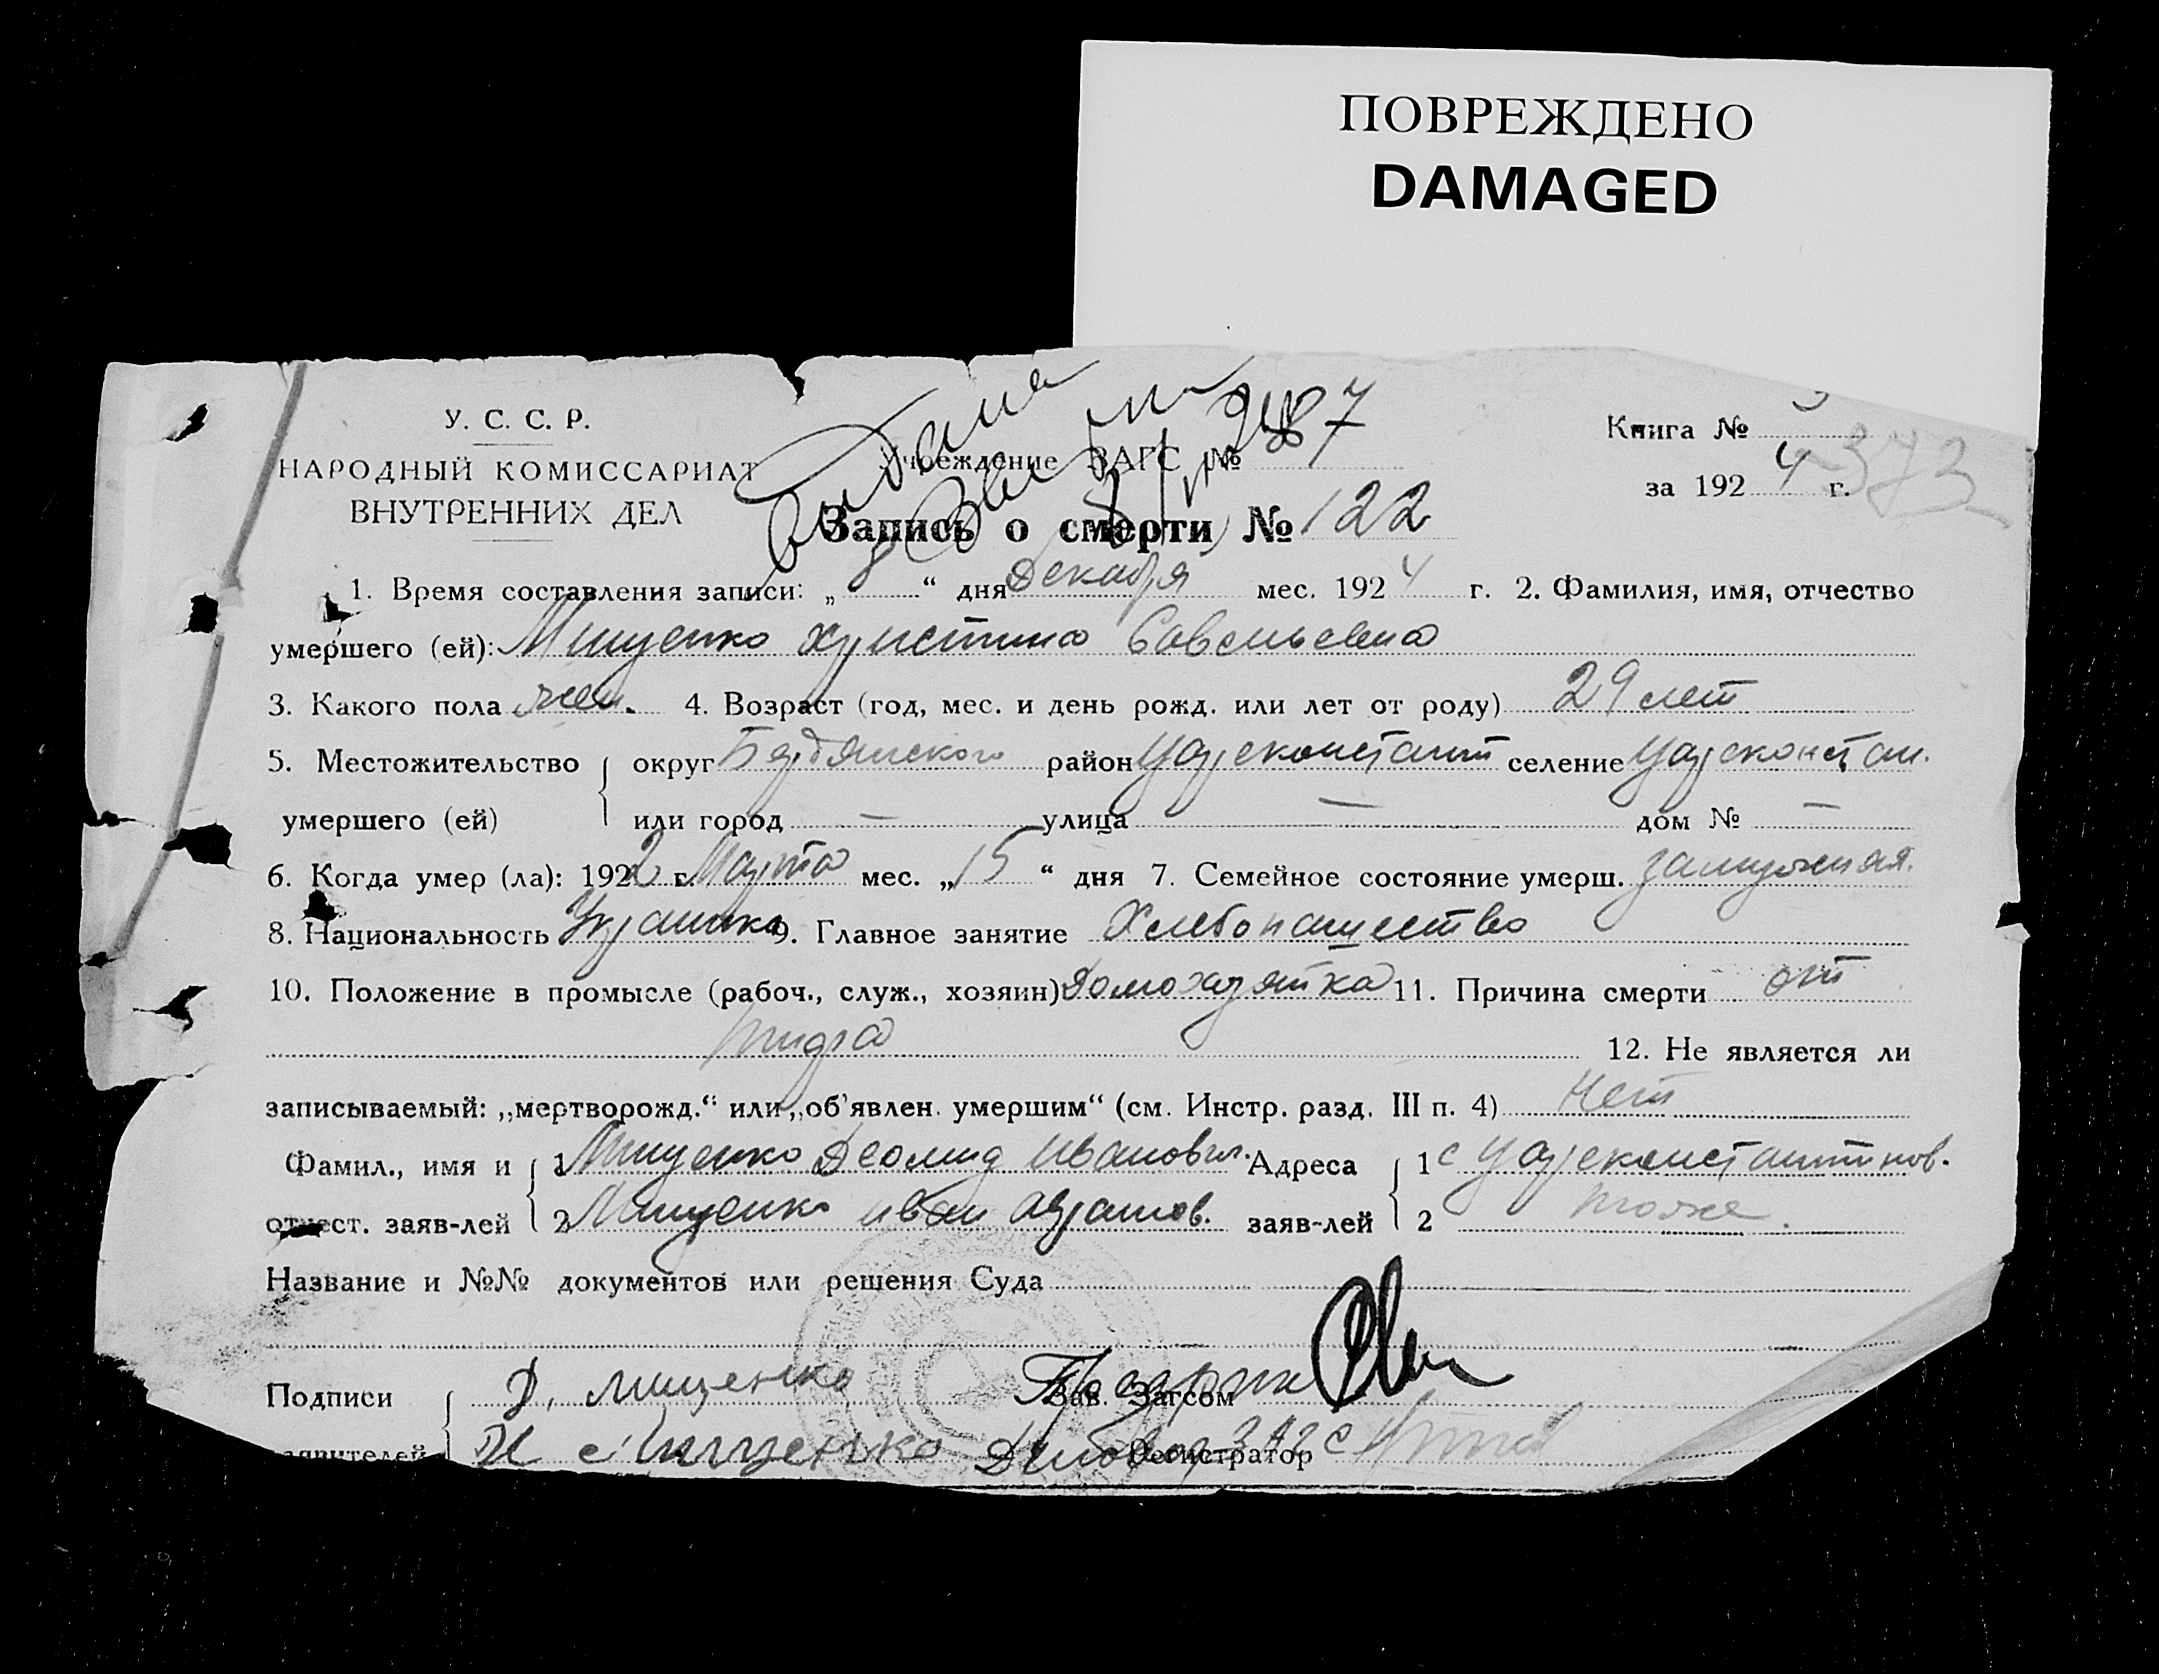 ПОВРЕЖДЕНО
DAMAGED
У. С. С. Р.
НАРОДНЫЙ КОМИССАРИАТ
ВНУТРЕННИХ ДЕЛ
Учреждение ЗАГС №
Книга №
373
за 1924 г.
Запись о смерти № 122
1. Время составления записи: „8“ дня Декабря мес. 1924 г. 2. Фамилия, имя, отчество
умершего (ей): Мищенко Христина Савельевна
3. Какого пола жен. 4. Возраст (год, мес. и день рожд. или лет от роду) 29 лет
5. Местожительство округ Бердянского район Цареконстант селение Цареконстан.
умершего (ей) или город — улица — дом № —
6. Когда умер (ла): 1922 г. Марта мес. „15“ дня 7. Семейное состояние умерш. замужняя.
8. Национальность Украинка 9. Главное занятие Хлебопашество
10. Положение в промысле (рабоч., служ., хозяин) 11. Причина смерти от
тифа 12. Не является ли
записываемый: „мертворожд.“ или „об'явлен. умершим“ (см. Инстр. разд. III п. 4) Нет
Фамил., имя и 1 Мищенко Деомид Иванович. Адреса 1 с Цареконстантинов.
отчест. заяв-лей 2 Мищенко Иван заяв-лей 2 тоже.
Название и №№ документов или решения Суда
Подписи Д. Мищенко Зав. Загсом
заявителей И Мищенко Регистратор